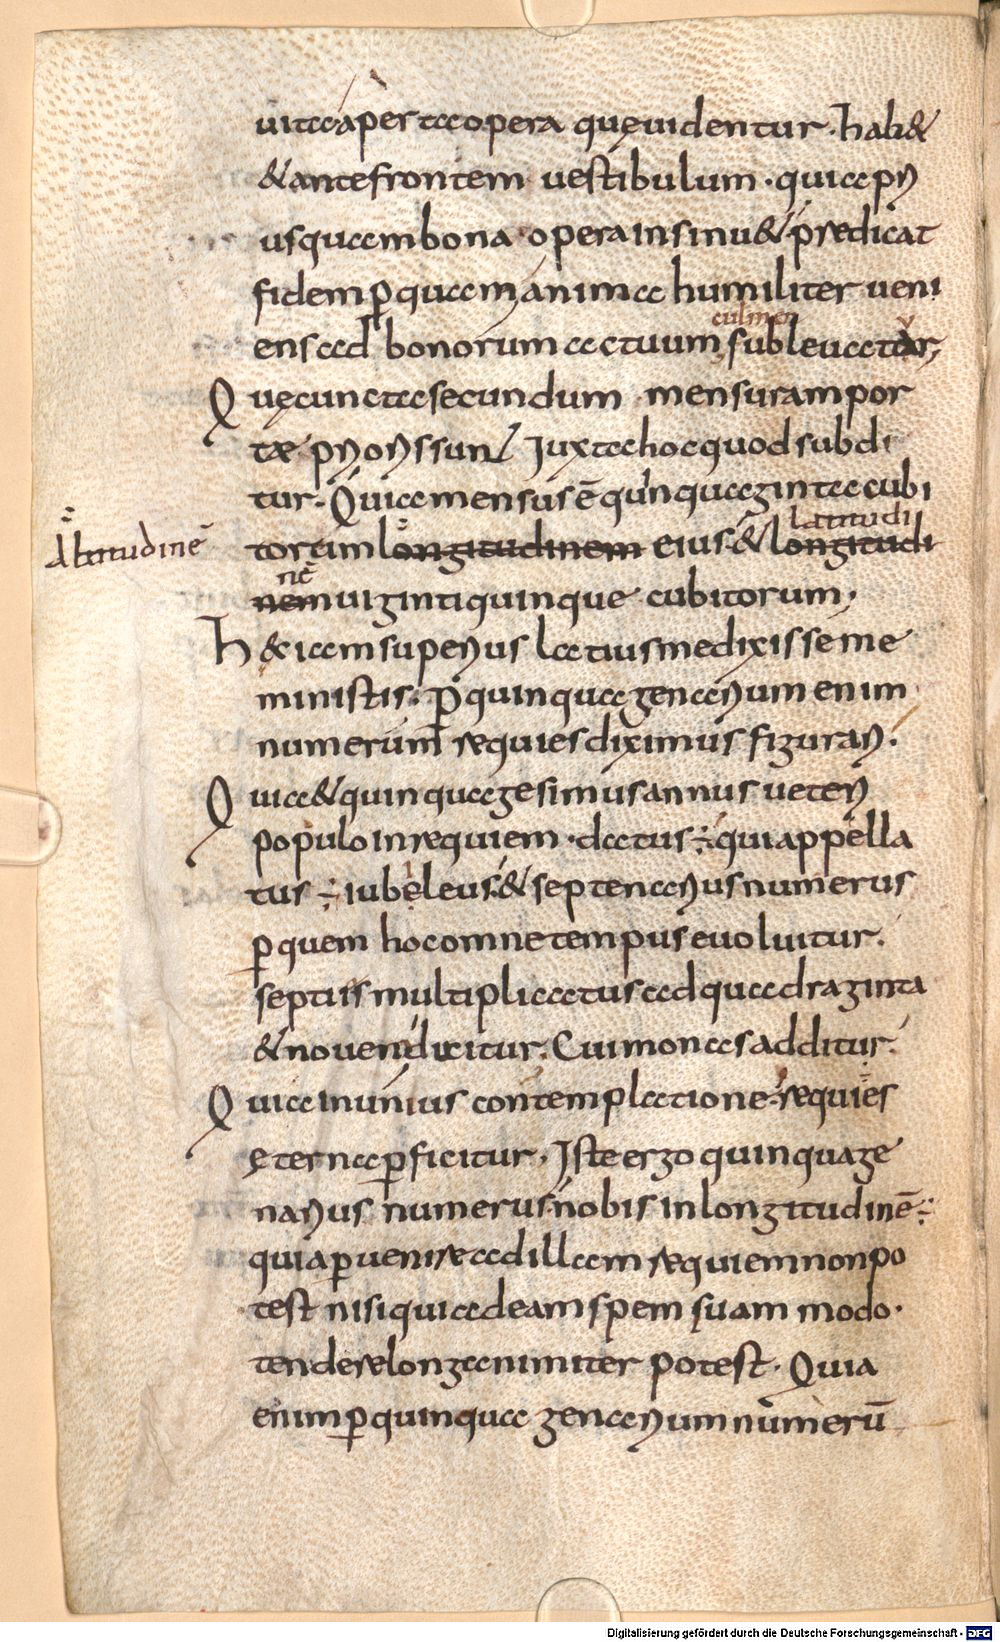 uita aperta opera quę uidentur. hab&
& ante frontem uestibulum. quia prı
usquam bona opera in sinu & predicat
fidem ꝑ quam anima humiliter ueni
culmen
ens ad bonorum actuum subleuatur;
Quę cuncta secundum mensuram por
tæ prioris sunt Iuxta hoc quod subdi
tur. Quia mensus ē quinquaginta cubi
Altitudinē
latitudi
torum longitudinem eius & longitudi
nē
nem uiginti quinque cubitorum.
H& iam superius latius me dixisse me
ministis. ꝑ quinquagenarium enim
numerum requies diximus figurari.
Quia & quinquagesimus annus ueteri
populo in requiem. datus ÷ qui appella
tus ÷ iubeleus & septenarius numerus
ꝑ quem hoc omne tempus euoluitur.
septiis multiplicatus ad quadraginta
& nouem dicitur. Cui monas additur.
Quia in unius contemplatione requies
ęterna ꝑficitur. Iste ergo quinquage
narius numerus nobis in longitudinē ÷
quia ꝑuenire ad illam requiem non po
test nisi qui ad eam spem suam modo.
tendere longanimiter potest. Quia
enim ꝑ quinquagenarium numerū